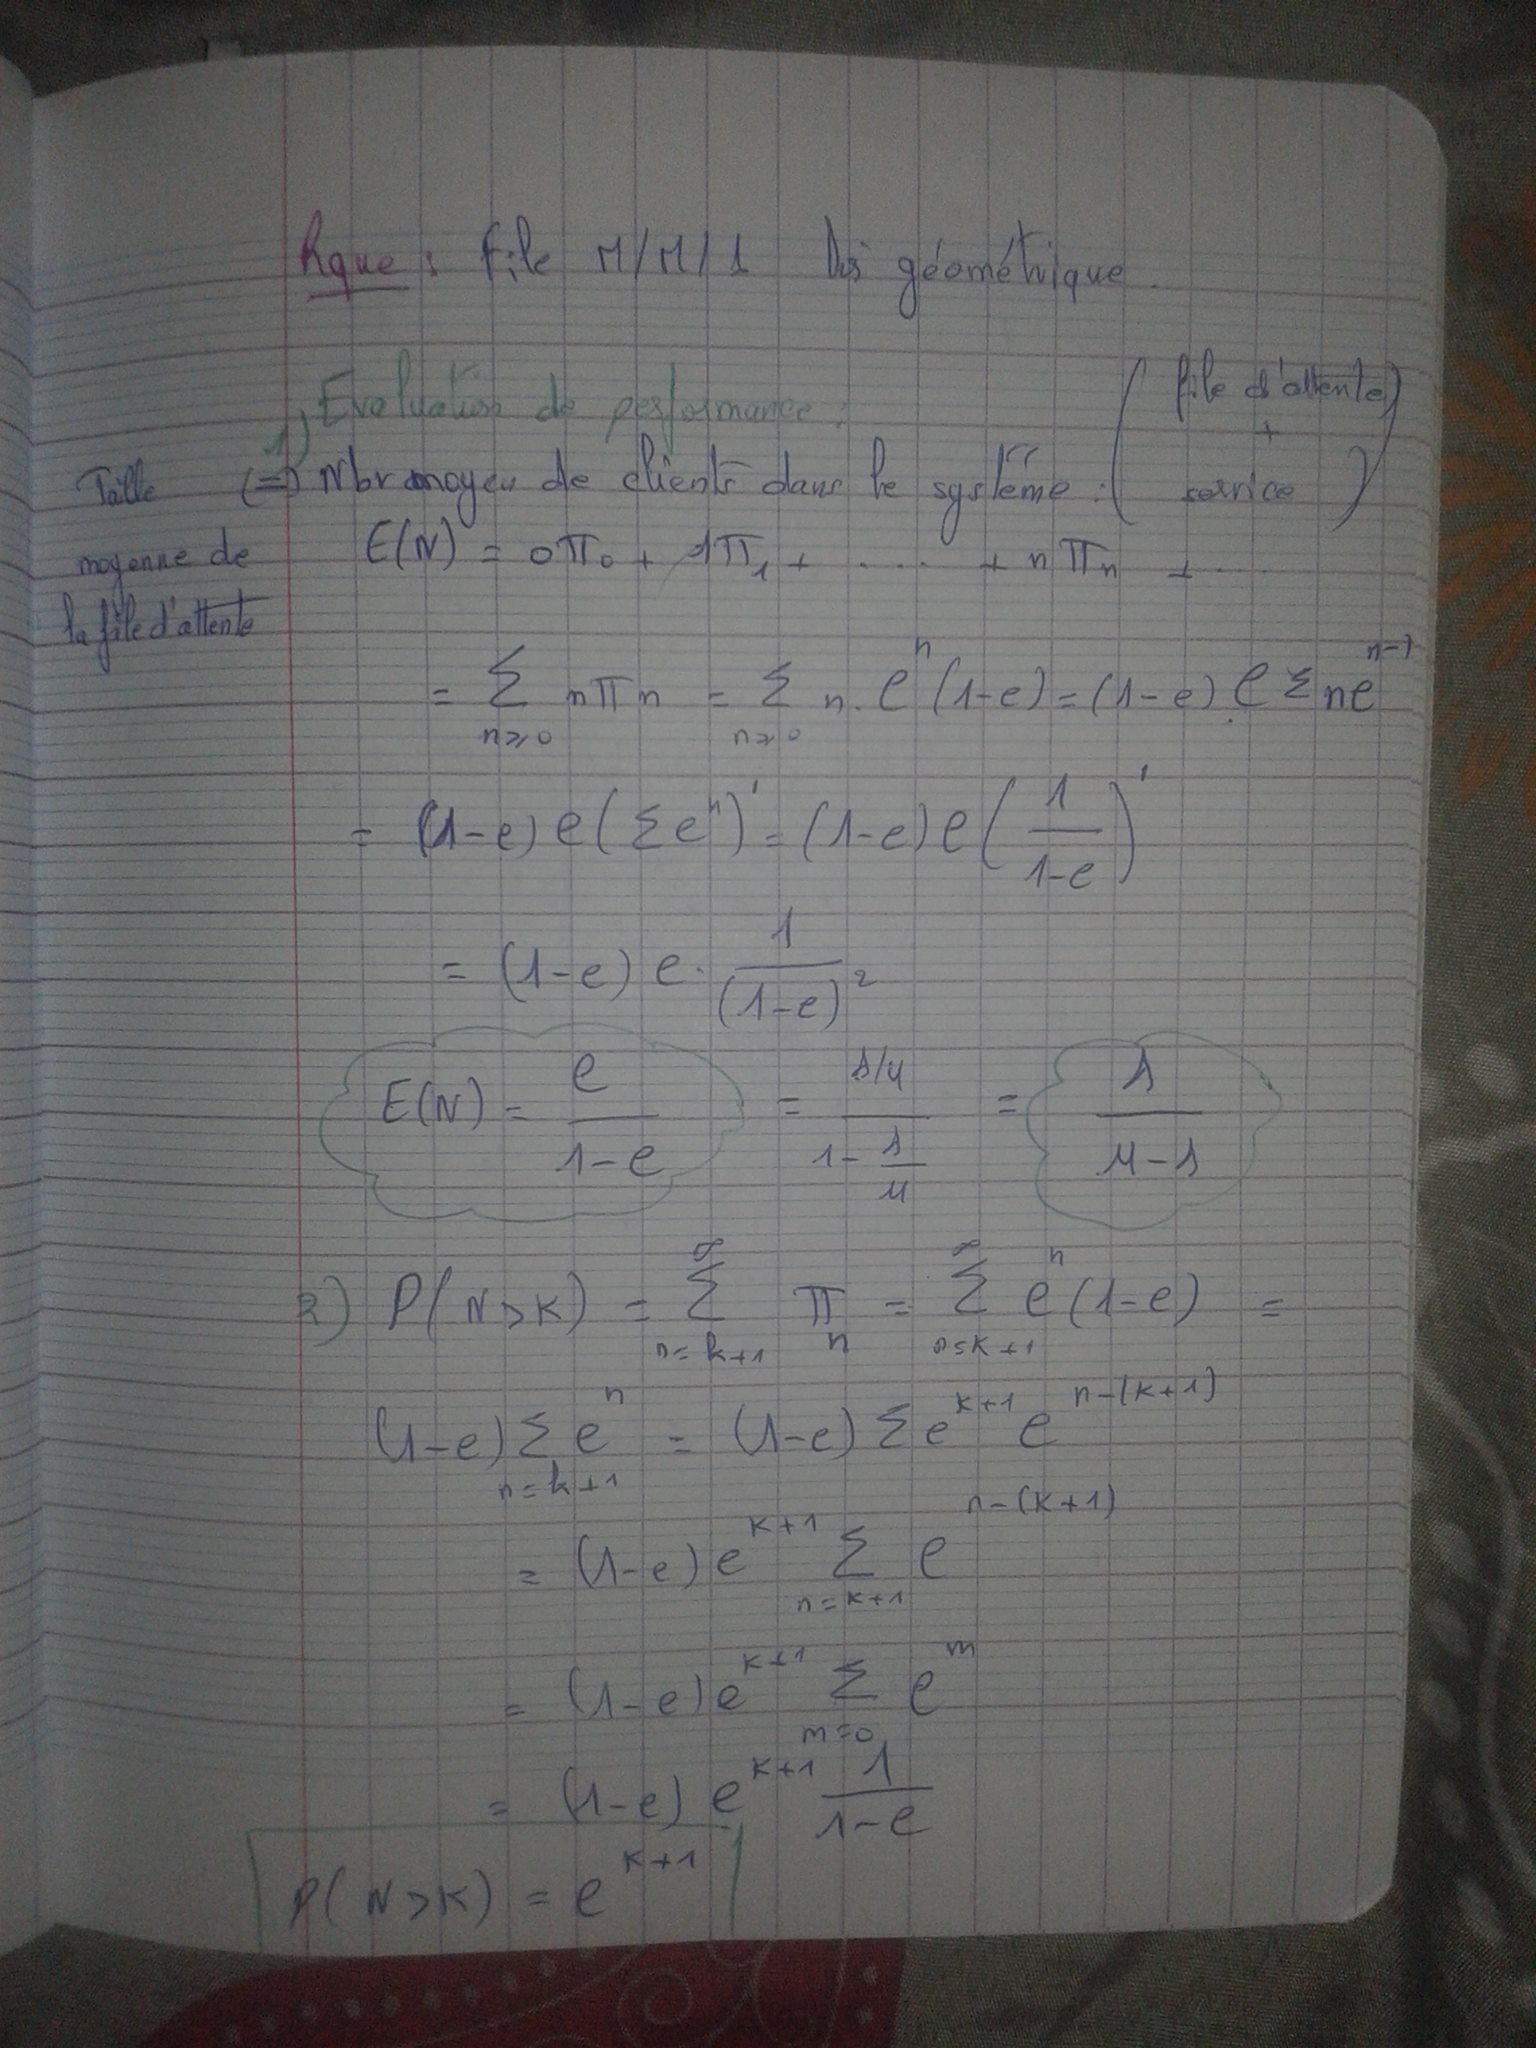 Rque : File M/M/1 Dis géométrique
1) Evaluation de performance :
(file d'attente + service)
Taille moyenne de la file d'attente
(=) Nbr moyen de clients dans le système :
E(N) = 0π₀ + 1π₁ + .... + n πn + ....
= Σ n≥0 nπn = Σ n≥0 n. e^n (1-e) = (1-e) e Σ ne^n-1
= (1-e) e (Σ e^n)' = (1-e) e (1/(1-e))'
= (1-e) e . 1/(1-e)²
E(N) = e/(1-e) = (λ/μ)/(1-λ/μ) = λ/(μ-λ)
2) P(N>K) = Σ^∞ n=k+1 πn = Σ^∞ n=K+1 e^n (1-e) =
(1-e) Σ n=k+1 e^n = (1-e) Σ e^K+1 e^n-(K+1)
= (1-e) e^K+1 Σ n=K+1 e^n-(K+1)
= (1-e) e^K+1 Σ m=0 e^m
= (1-e) e^K+1 1/(1-e)
P(N>K) = e^K+1